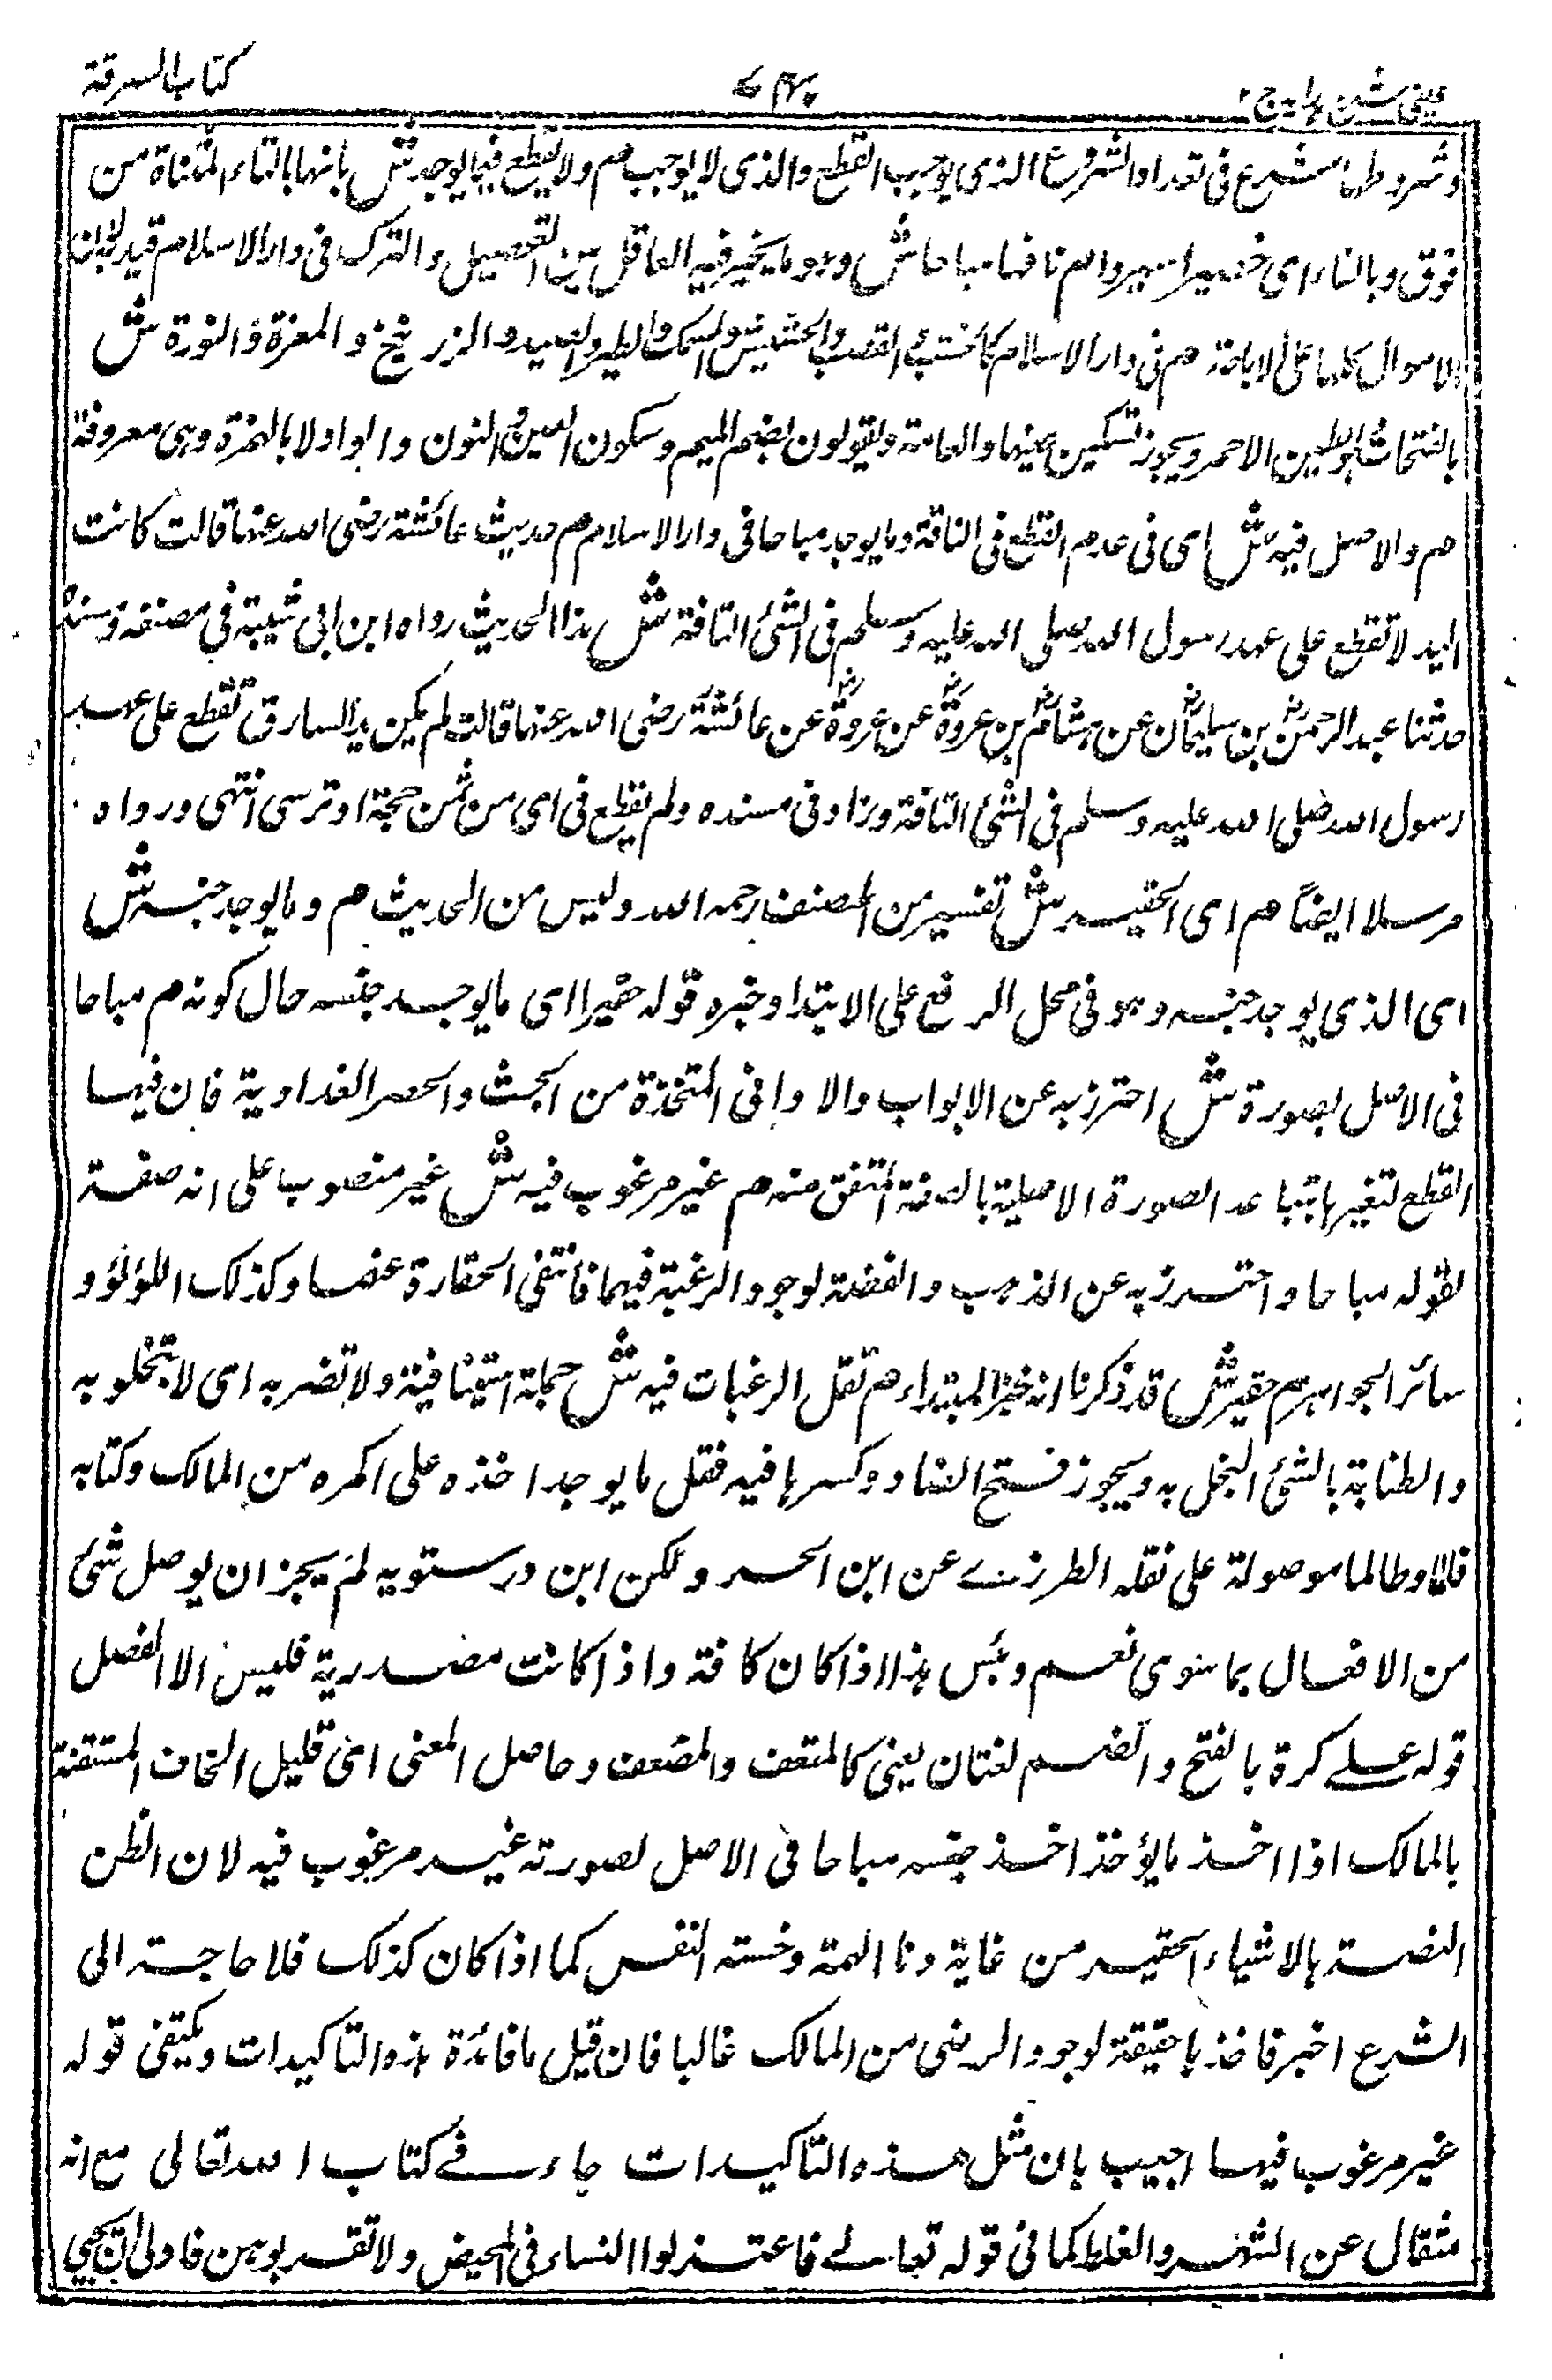 عینی شرح ہدایہ ج ۲
۷۴۰
کتاب السرقة
وشروطها شرع فی تعداد الشرع الذی یوجب القطع والذی لا یوجب م ولا یقطع فیما یوجد ش بانها بالتاء المثناة من
فوق وبالتاء ای حقیرا م تافها مباحا ش وهو ما یخیر فیه العاقل بین التحصیل والترک فی دار الاسلام قید لان
الاموال کلها علی الاباحة م فی دار الاسلام کالخشب والقصب والحشیش والسمک والطیر والصید والزرنیخ والمغرة والنورة ش
بالفتحات الطین الاحمر ویجوز تسکین عینها والعامة یقولون بضم المیم وسکون العین والنون والواو لا بالهمزة وهی معروفة
م والاصل فیه ش ای فی عدم القطع فی التافة وما یوجد مباحا فی دار الاسلام م حدیث عائشة رضی الله عنها قالت کانت
الید لا تقطع علی عهد رسول الله صلی الله علیه وسلم فی الشئ التافة ش هذا الحدیث رواه ابن ابی شیبة فی مصنفه ومسنده
حدثنا عبد الرحمن بن سلیمان عن هشام بن عروة عن عروة عن عائشة رضی الله عنها قالت لم یکن ید السارق تقطع علی عهد
رسول الله صلی الله علیه وسلم فی الشئ التافة وزاد فی مسنده ولم یقطع فی ای من ثمن حجة او ترس انتهی ورواه
مرسلا ایضا م ای الحقیر ش تفسیر من المصنف رحمه الله ولیس من الحدیث م وما یوجد جنسه ش
ای الذی یوجد جنسه وهو فی محل الرفع علی الابتدا وخبره قوله حقیرا ای ما یوجد جنسه حال کونه م مباحا
فی الاصل بصورة ش احترز به عن الابواب والاوانی المتخذة من الخشب والحصر البغدادیة فان فیها
القطع لتغیرها بتباعد الصورة الاصلیة بالصفة المتفق منه م غیر مرغوب فیه ش غیر منصوب علی انه صفة
لقوله مباحا واحترز به عن الذهب والفضة لوجود الرغبة فیهما فانتفی الحقارة عنها وکذلک اللؤلؤ و
سائر الجواهر م حقیر ش قد ذکرنا انه خبر المبتداء م تقل الرغبات فیه ش جملة استینافیة ولا تضر به ای لا تبخلو به
والطنابة بالشئ البخل به ویجوز فتح الضاد وکسرها فیه فقل ما یوجد اخذه علی اکره من المالک وکتابه
فالما وطالما موصولة علی نقله الطرزی عن ابن الحسر ولکن ابن درستویه لم یجز ان یوصل شئ
من الافعال بما سوی نعم وبئس هذا اذا کان کافة واذا کانت مصدریة فلیس الا الفصل
قوله علی کرة بالفتح والضم لغتان یعنی کالمتعف والمضعف وحاصل المعنی انی قلیل الخاف المستقنة
بالمالک اذا اخذ ما یؤخذ اخذ جنسه مباحا فی الاصل لصورته غیر مرغوب فیه لان الظن
الضنة بالاشیاء الحقیر من غایة دنا الهمة وخسته النفس کما اذا کان کذلک فلا حاجة الی
الشرع اخبر فاخذ باحقیقة لوجود الرضی من المالک غالبا فان قیل ما فائدة هذه التاکیدات ویکتفی قوله
غیر مرغوب فیها اجیب بان مثل هذه التاکیدات جاء فی کتاب الله تعالی مع انه
مثقال عن الشهر والغلط کما فی قوله تعالی فاعتزلوا النساء فی المحیض ولا تقربوهن فاولی ان یجی